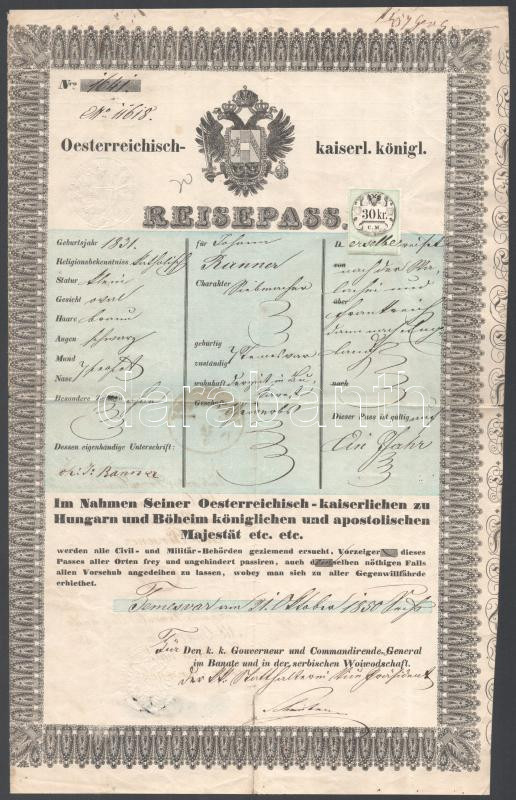 Nro 1641.
No 11618.
Oesterreichisch- kaiserl. königl.
REISEPASS.
30 kr.
C.M.
Geburtsjahr 1831.
Religionsbekenntniss katholisch
Statur klein
Gesicht oval
Haare braun
Augen schwarz
Mund
Nase
Besondere
Dessen eigenhändige Unterschrift:
Ranner
für Johann
Ranner
Charakter
gebürtig
zuständig Temesvar
wohnhaft derzeit in Bu-
Geschäfte
Derselbe reiset
von
nach der Wa-
lachei und
über
Frankreich
dann nach Eng-
land
nach
Dieser Pass ist gültig auf
Ein Jahr
darabanth
Im Namen Seiner Oesterreichisch-kaiserlichen zu
Hungarn und Böheim königlichen und apostolischen
Majestät etc. etc.
werden alle Civil- und Militär-Behörden geziemend ersucht, Vorzeiger dieses
Passes aller Orten frey und ungehindert passiren, auch demselben nöthigen Falls
allen Vorschub angedeihen zu lassen, wobey man sich zu aller Gegenwillfährde
erbiethet.
Temesvar am 21. Oktober 1850
Für Den k. k. Gouverneur und Commandirende General
im Banate und in der serbischen Woiwodschaft.
Der k. k. Statthalterei Vice Präsident